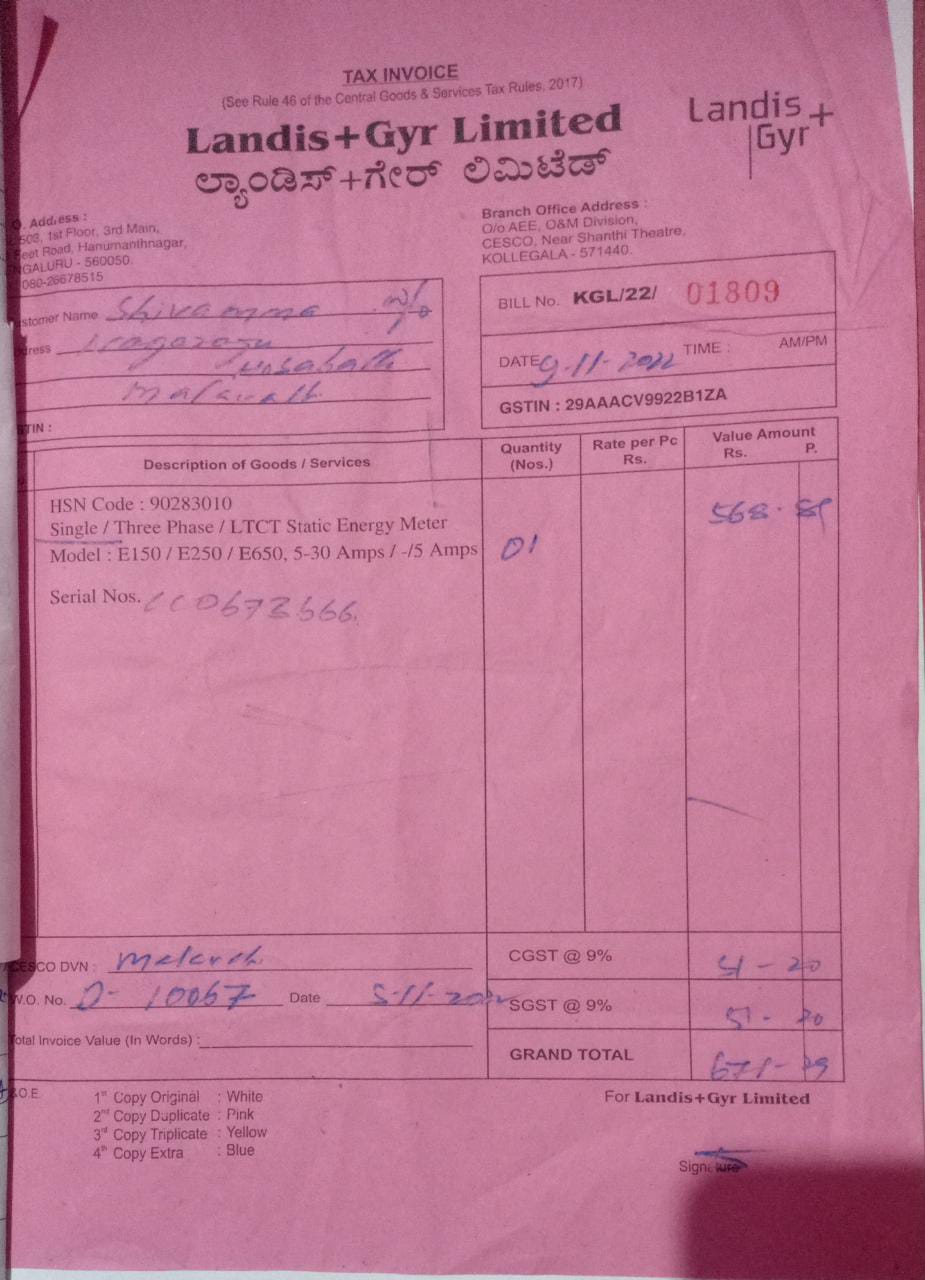 TAX INVOICE
(See Rule 46 of the Central Goods & Services Tax Rules, 2017)
Landis+Gyr Limited
ಲ್ಯಾಂಡಿಸ್+ಗೇರ್ ಲಿಮಿಟೆಡ್
Landis+
Gyr
Address :
1st Floor, 3rd Main,
Road, Hanumanthnagar,
GALURU - 560050.
080-26678515
Branch Office Address :
O/o AEE, O&M Division,
CESCO, Near Shanthi Theatre,
KOLLEGALA - 571440.
stomer Name Shivamma w/o
ress
TIN :
BILL No. KGL/22/ 01809
DATE 9-11-2022 TIME : AM/PM
GSTIN : 29AAACV9922B1ZA
Description of Goods / Services
Quantity
(Nos.)
Rate per Pc
Rs.
Value Amount
Rs. P.
HSN Code : 90283010
Single / Three Phase / LTCT Static Energy Meter
Model : E150 / E250 / E650, 5-30 Amps / -/5 Amps
01
568.
Serial Nos.
CESCO DVN :
W.O. No. 10067 Date 5-11-2022
Total Invoice Value (In Words) :
CGST @ 9% 51-20
SGST @ 9% 51-20
GRAND TOTAL 671-29
&.O.E.
1st Copy Original : White
2nd Copy Duplicate : Pink
3rd Copy Triplicate : Yellow
4th Copy Extra : Blue
For Landis+Gyr Limited
Signature